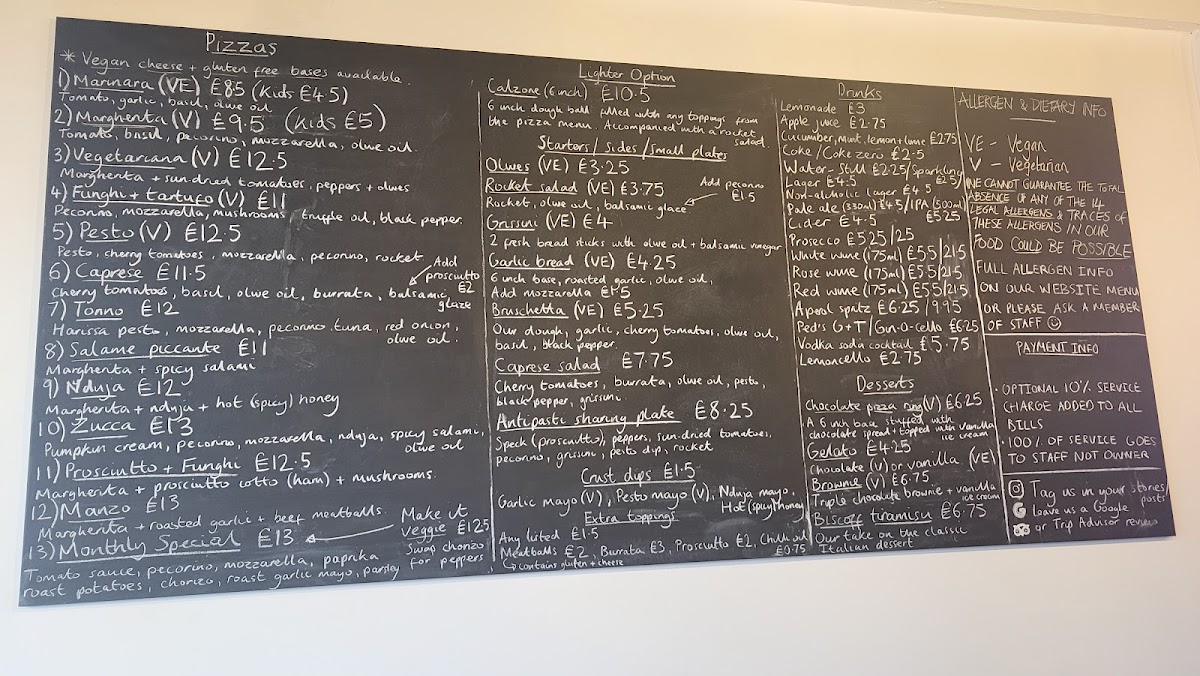 Pizzas
* Vegan cheese + gluten free bases available.
1) Marinara (VE) £8.5 (Kids £4.5)
Tomato, garlic, basil, olive oil
2) Margherita (V) £9.5 (Kids £5)
Tomato, basil, pecorino, mozzarella, olive oil.
3) Vegetariana (V) £12.5
Margherita + sun-dried tomatoes, peppers + olives
4) Funghi + tartufo (V) £11
Pecorino, mozzarella, mushrooms, truffle oil, black pepper.
5) Pesto (V) £12.5
Pesto, cherry tomatoes, mozzarella, pecorino, rocket
6) Caprese £11.5
Add prosciutto £2
Cherry tomatoes, basil, olive oil, burrata, balsamic glaze
7) Tonno £12
Harissa pesto, mozzarella, pecorino tuna, red onion, olive oil.
8) Salame piccante £11
Margherita + spicy salami
9) Nduja £12
Margherita + nduja + hot (spicy) honey
10) Zucca £13
Pumpkin cream, pecorino, mozzarella, nduja, spicy salami, olive oil
11) Prosciutto + Funghi £12.5
Margherita + prosciutto cotto (ham) + mushrooms.
12) Manzo £13
Margherita + roasted garlic + beef meatballs.
13) Monthly Special £13
Make it
Veggie £12.5
Swap chorizo
for peppers
Tomato sauce, pecorino, mozzarella, paprika
roast potatoes, chorizo, roast garlic mayo, parsley
Lighter Option
Calzone (6 inch) £10.5
6 inch dough ball filled with any toppings from
the pizza menu. Accompanied with a rocket salad.
Starters/sides/small plates
Olives (VE) £3.25
Rocket salad (VE) £3.75
Add pecorino
£1.5
Rocket, olive oil, balsamic glaze
Grissini (VE) £4
2 fresh bread sticks with olive oil + balsamic vinegar
Garlic bread (VE) £4.25
6 inch base, roasted garlic, olive oil,
Add mozzarella £1.5
Bruschetta (VE) £5.25
Our dough, garlic, cherry tomatoes, olive oil,
basil, black pepper.
Caprese salad £7.75
Cherry tomatoes, burrata, olive oil, pesto,
black pepper, grissini.
Antipasti sharing plate £8.25
Speck (prosciutto), peppers, sun-dried tomatoes,
pecorino, grissini, pesto dip, rocket
Crust dips £1.5
Garlic mayo (V), Pesto mayo (V), Nduja mayo,
Hot (spicy) honey
Extra toppings
Any listed £1.5
Meatballs £2, Burrata £3, Prosciutto £2, Chilli oil £0.75
↳ contains gluten + cheese
Drinks
Lemonade £3
Apple juice £2.75
Cucumber, mint, lemon + lime £2.75
Coke/Coke zero £2.5
Water - Still £2.25/Sparkling £2.5
Lager £4.5
Non-alcoholic lager £4.5
Pale ale (330ml) £4.5/IPA (500ml) £5.25
Cider £4.5
Prosecco £5.25/25
White wine (175ml) £5.5/21.5
Rose wine (175ml) £5.5/21.5
Red wine (175ml) £5.5/21.5
Aperol spritz £6.25/9.95
Ped's G+T/Gin-o-cello £6.25
Vodka soda cocktail £5.75
Lemoncello £2.75
Desserts
Chocolate pizza ring (V) £6.25
A 6 inch base stuffed with
chocolate spread + topped with vanilla ice cream
Gelato £4.25
Chocolate (V) or vanilla (VE)
Brownie (V) £6.75
Triple chocolate brownie + vanilla ice cream
Biscoff tiramisu £6.75
Our take on the classic
Italian dessert
ALLERGEN & DIETARY INFO
VE - Vegan
V - Vegetarian
WE CANNOT GUARANTEE THE TOTAL
ABSENCE OF ANY OF THE 14
LEGAL ALLERGENS & TRACES OF
THESE ALLERGENS IN OUR
FOOD COULD BE POSSIBLE
FULL ALLERGEN INFO
ON OUR WEBSITE MENU
OR PLEASE ASK A MEMBER
OF STAFF ☺
PAYMENT INFO
· OPTIONAL 10% SERVICE
CHARGE ADDED TO ALL
BILLS
· 100% OF SERVICE GOES
TO STAFF NOT OWNER
Tag us in your stories/posts
Leave us a Google
or Trip Advisor review